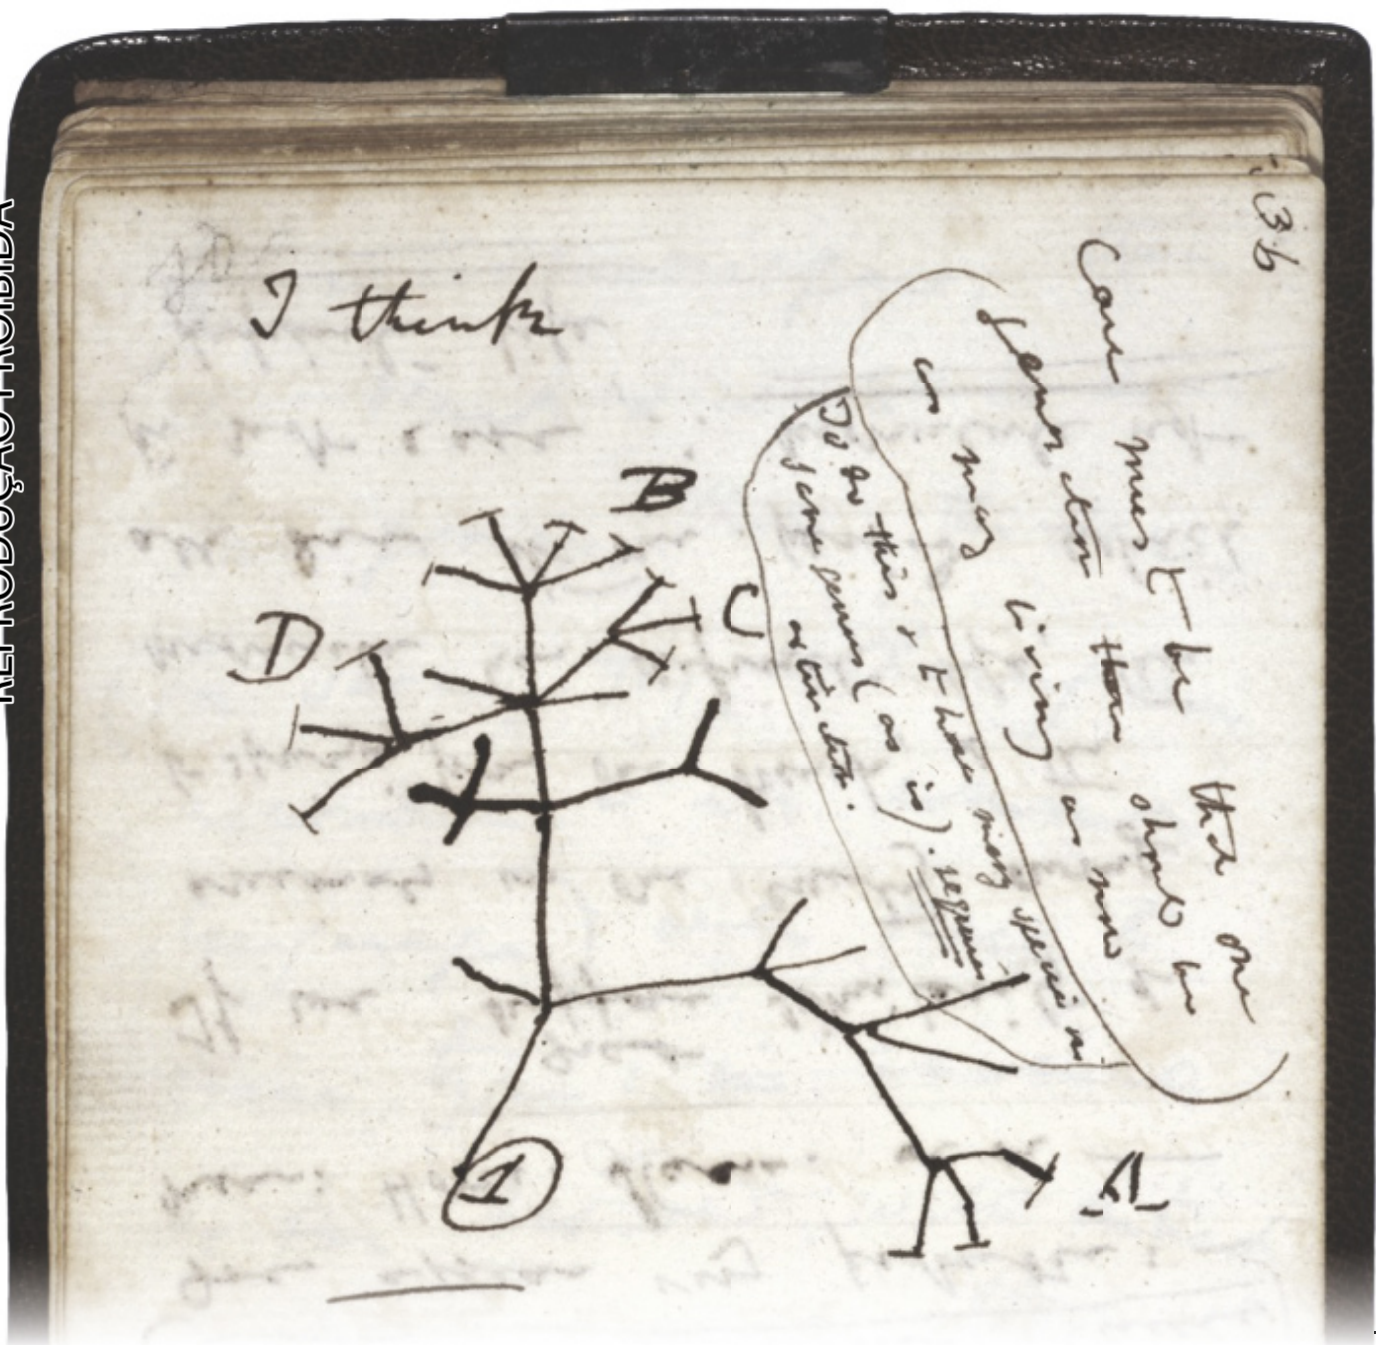 REPRODUÇÃO PROIBIDA
36
I think
Case must be that one
generation then should be
as many living as now
To do this & to have many species in
same genus (as is). requires
extinction.
B
C
D
A
1